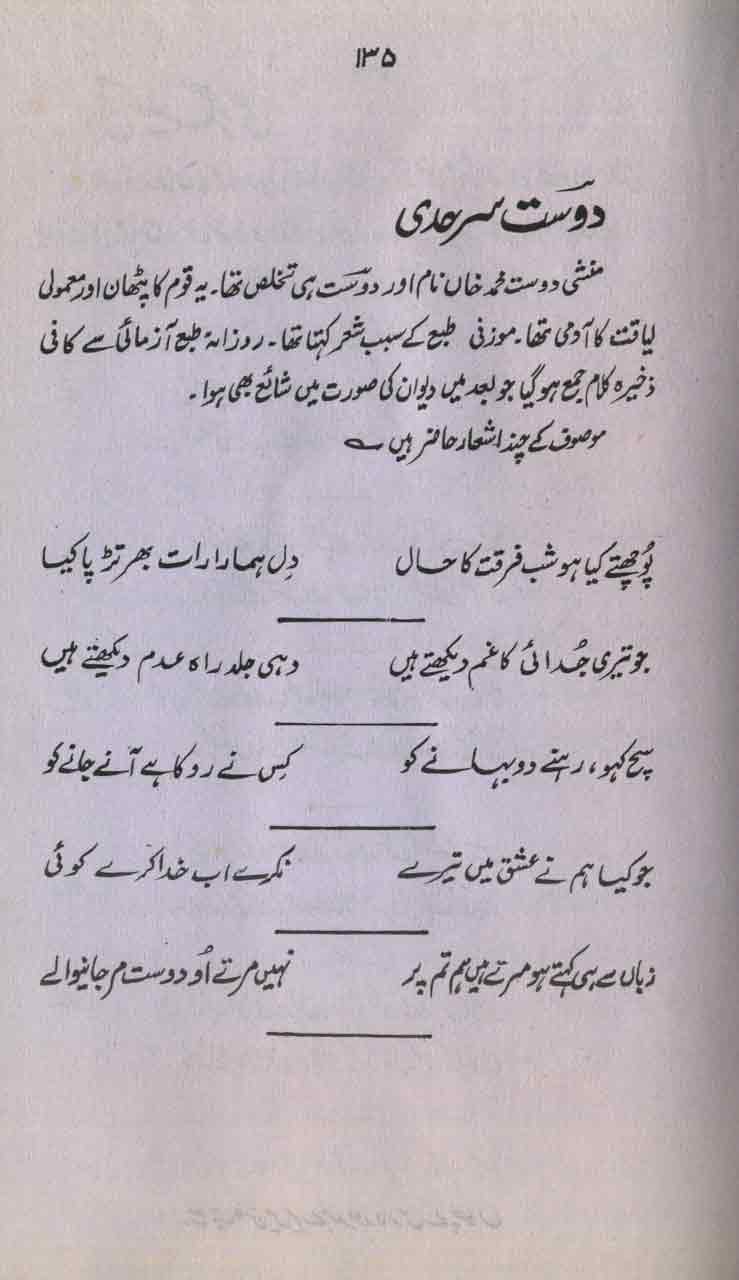 ۱۳۵
دوست سرحدی
منشی دوست محمد خاں نام اور دوست ہی تخلص تھا۔ یہ قوم کا پٹھان اور معمولی
لیاقت کا آدمی تھا۔ موزنی طبع کے سبب شعر کہتا تھا۔ روزانہ طبع آزمائی سے کافی
ذخیرہ کلام جمع ہو گیا جو بعد میں دیوان کی صورت میں شائع بھی ہوا۔
موصوف کے چند اشعار حاضر ہیں ؎
پُوچھتے کیا ہو شب فرقت کا حال دِل ہمارا رات بھر تڑپا کیا
جو تیری جُدائی کا غم دیکھتے ہیں وہی جلد راہ عدم دیکھتے ہیں
سچ کہو، رہنے دو بہانے کو کِس نے روکا ہے آنے جانے کو
جو کیا ہم نے عشق میں تیرے نکرے اب خدا کرے کوئی
زباں سے ہی کہتے ہو مرتے ہیں ہم تم پر نہیں مرتے اُو دوست مر جانیوالے